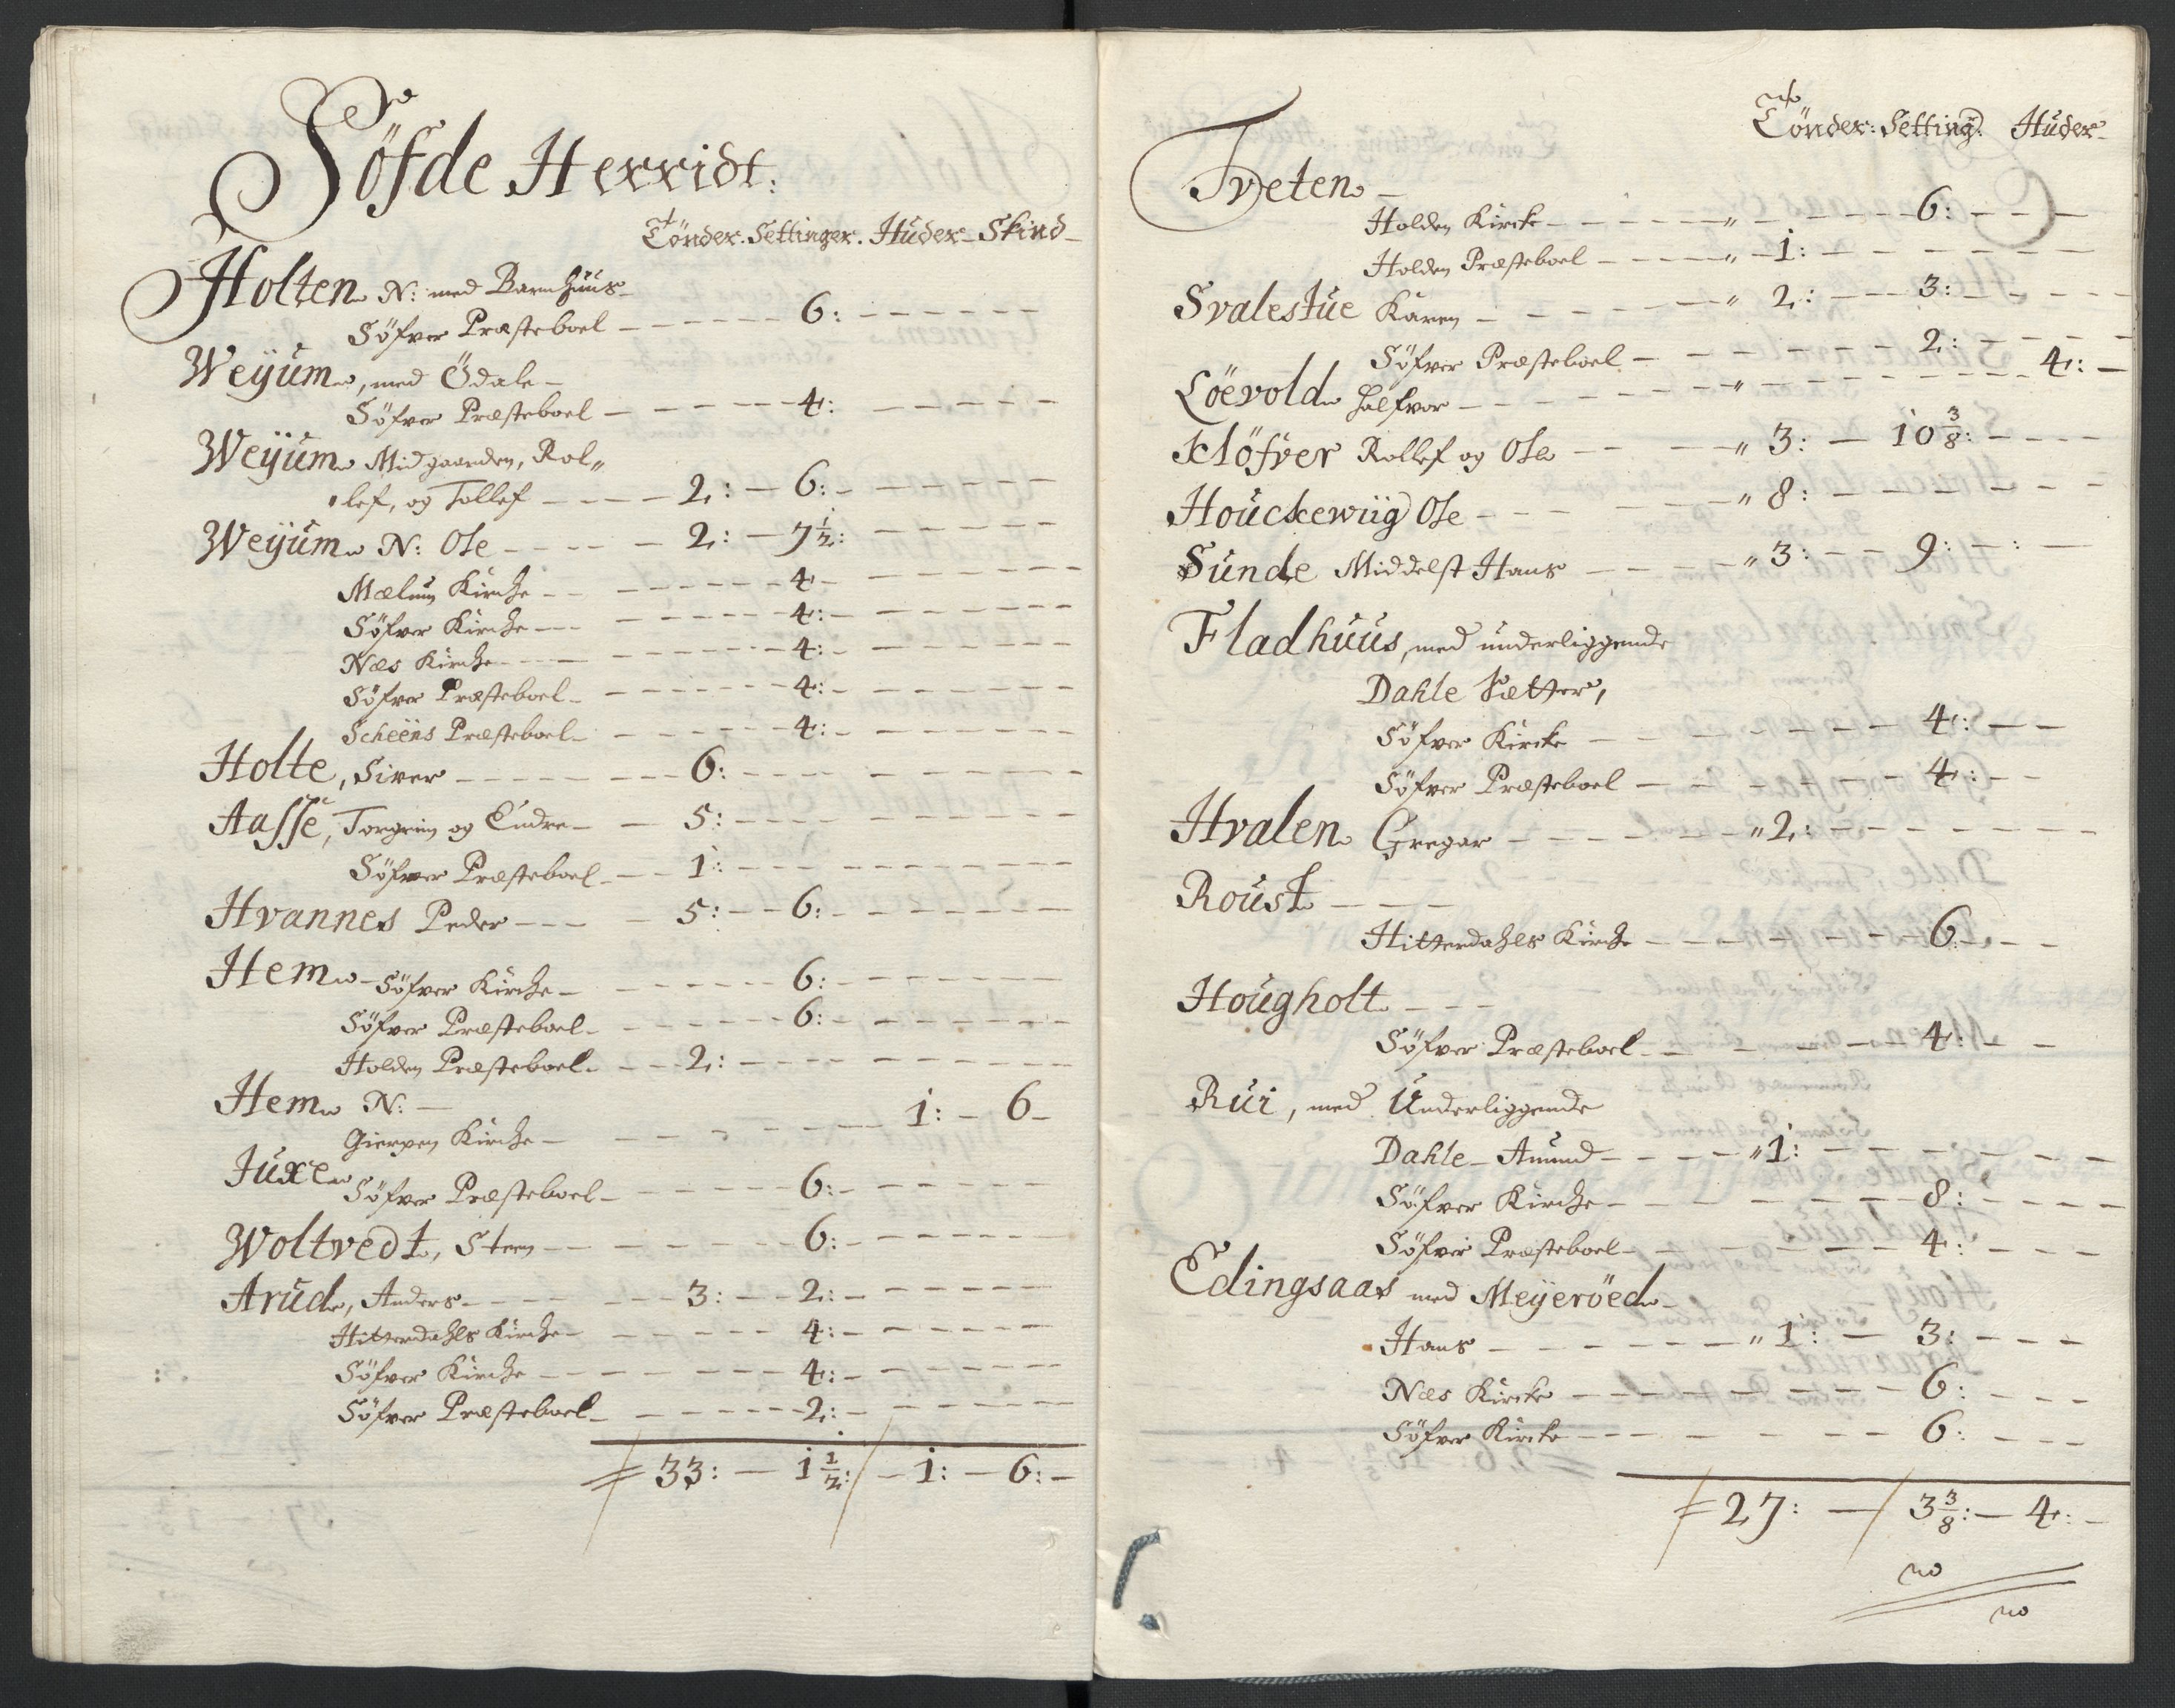 Söfde Herridt:
Tönder. Settinger. Huder_ Skind_
Holten N: med Barmhuus_
Söfver Præsteboel – – – – – 6: – – – – –
Weÿum, med Ödale –
Söfver Præsteboel – – – – – 4: – – – – –
Weÿum Midgaarden, Rol„
„lef, og Tollef – – – 2: – 6: – – – – –
Weÿum N: Ole – – – – 2: – 7 1/2: – – – –
Mælum Kirche – – – – – – 4 – – – – –
Söfver Kirche – – – – – – 4: – – – – –
Næs Kirche – – – – – – 4: – – – – –
Söfver Præsteboel – – – – – 4: – – – – –
Scheens Præsteboel – – – – – 4: – – – – –
Holte, Siver – – – – – 6: – – – – – – –
Aasse, Torgrim og Endre – – 5: – – – – – – –
Söfver Præsteboel – – 1: – – – – – – –
Hvannes Peder – – – – 5: – – 6: – – – – –
Hem – Söfver Kirche – – – – – 6: – – – – –
Söfver Præsteboel – – – – – 6: – – – – –
Holden Præsteboel – – 2: – – – – – – –
Hem N: –
Gierpen Kirche – – – – – – – 1: – 6 –
Juxe
Söfver Præsteboel – – – – – 6: – – – – –
Woltvedt, Steen – – – – – 6: – – – – –
Arud, Anders – – – – 3: – – 2: – – – – –
Hitterdahls Kirche – – – – – 4: – – – – –
Söfver Kirche – – – – – – 4: – – – – –
Söfver Præsteboel – – – – – 2: – – – – –
33: – 1 1/2: – 1: – 6: –
Tönder: Setting: Huder_
Tveten –
Holden Kircke – – – – – „ – – – – 6: – – –
Holden Præsteboel – – – – „ – 1: – – – – – –
Svalestue Karen – – – – – „ 2: – – – 3: – – – –
Söfver Præsteboel – – – – – – – 2: – – – –
Löevold Halfvor – – – – – „ – – – – – – 4: –
Klöfver Rollef og Ole – – – „ 3: – 10 3/8: – – –
Houckewiig Ole – – – – – „ 8: – – – – – –
Sunde Middelst Hans – – – – „ 3: – – 9: – : –
Fladhuus, med underliggende
Dahle Sætter,
Söfver Kircke – – – – – – – 4: – –
Söfver Præsteboel – – – – – – 4: – –
Hvalen Gregar – – – – – „ 2: – – – – – –
Roust – – –
Hitterdahls Kirche – – – – – – 6: – –
Hougholt – – –
Söfver Præsteboel – – – – – – 4: – –
Rui, med Underliggende
Dahle – Amund – – – – „ 1: – – – – – –
Söfver Kirche – – – – – – – 8: – – –
Söfver Præsteboel – – – – – – 4: – – –
Edingsaas med Meÿeröed
Hans – – – – – – „ 1: – 3: – – –
Næs Kircke – – – – – – – 6: – – –
Söfver Kircke – – – – – – – 6: – – –
27: – 3 3/8: – 4: –